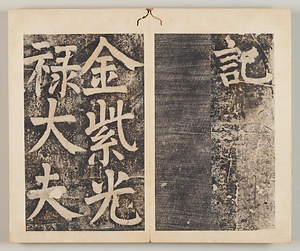 記
金紫光
祿大夫